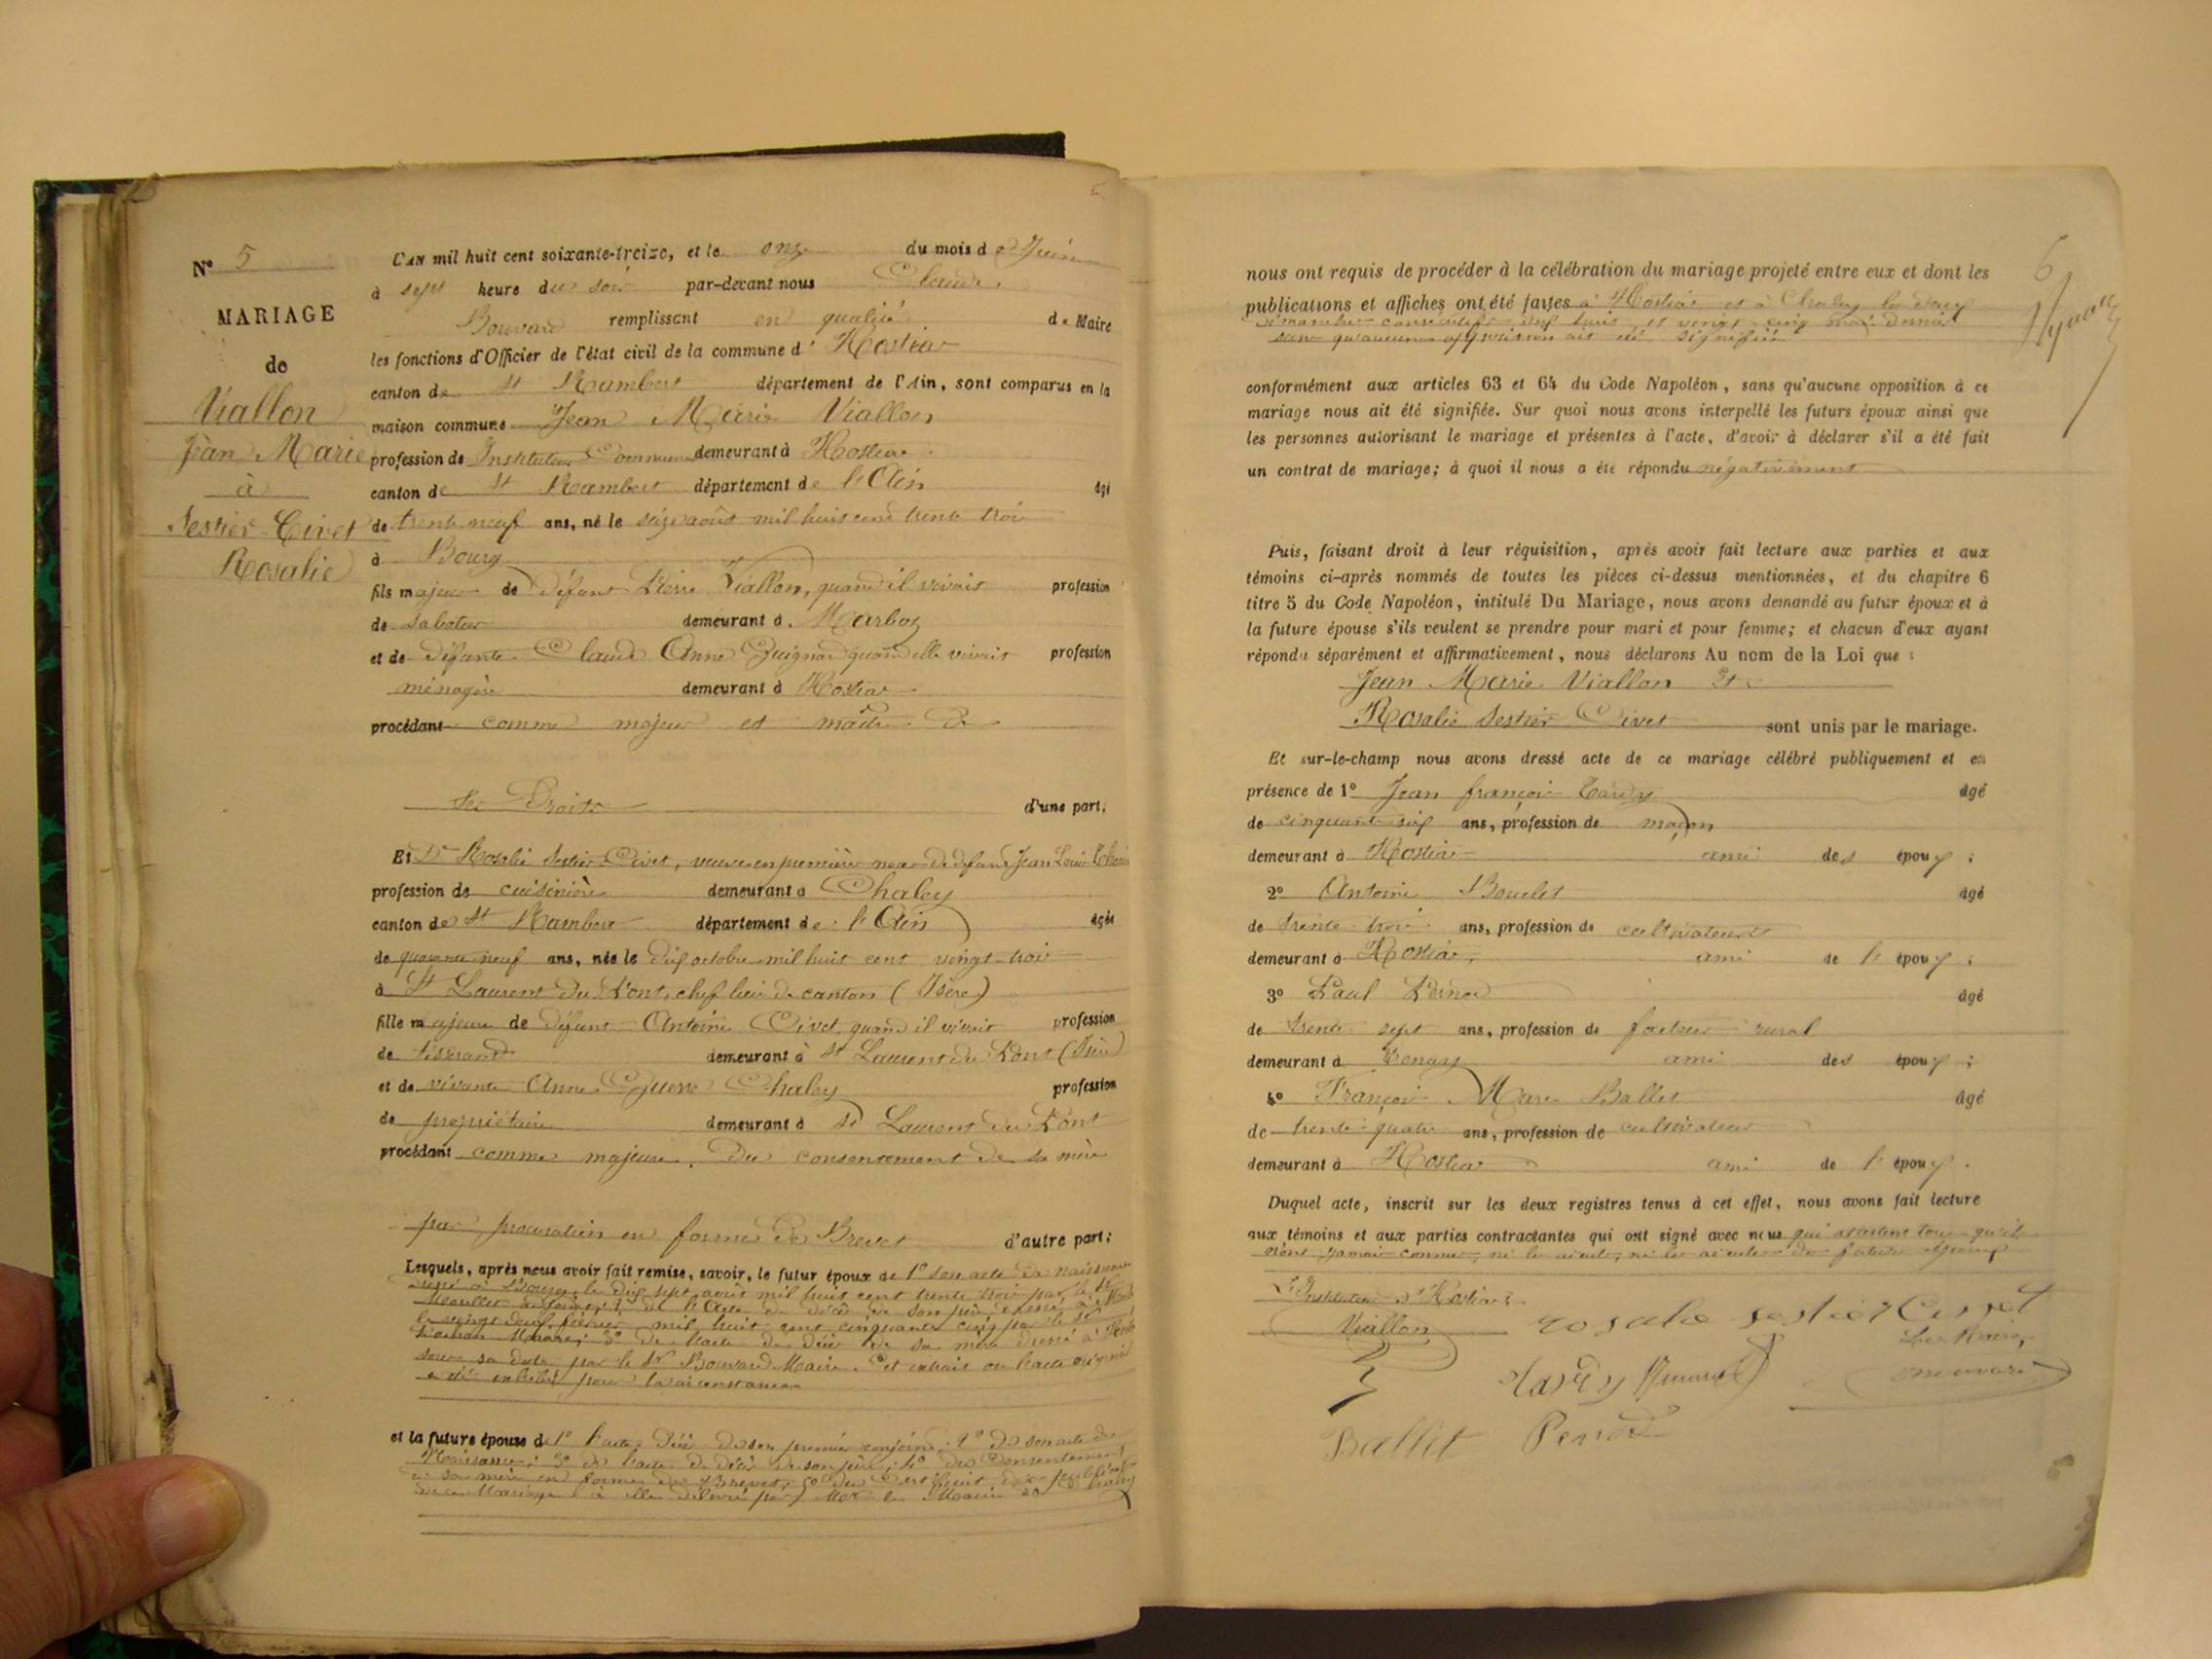 N° 5
MARIAGE
de
Viallon
Jean Marie
à
Sestier Civet
Rosalie
L'AN mil huit cent soixante-treize, et le onze du mois de Juin
à sept heure du soir par-devant nous Claude
Bouvard remplissant en qualité de Maire
les fonctions d'Officier de l'état civil de la commune d' Hostiaz
canton de St Rambert département de l'Ain, sont comparus en la
maison commune Jean Marie Viallon
profession de Instituteur Communal demeurant à Hostiaz
canton de St Rambert département de l'Ain âgé
de trente neuf ans, né le seize août mil huit cent trente trois
à Bourg
fils majeur de défunt Pierre Viallon, quand il vivait profession
de sabotier demeurant à Marboz
et de défunte Claude Anne Guignard quand elle vivait profession
ménagère demeurant à Hostiaz
procédant comme majeur et maître de
ses Droits d'une part;
Et De Rosalie Sestier Civet, veuve en premières noces de défunt Jean Louis
profession de cuisinière demeurant à Chaley
canton de St Rambert département de l'Ain âgée
de quarante neuf ans, née le dix octobre mil huit cent vingt-trois
à St Laurent du Pont, chef lieu de canton (Isère)
fille majeure de défunt Antoine Civet, quand il vivait profession
de tisserand demeurant à St Laurent du Pont (Isère)
et de vivante Anne Guerre Chaley profession
de propriétaire demeurant à St Laurent du Pont
procédant comme majeure, du consentement de sa mère
par procuration en forme de Brevet d'autre part;
Lesquels, après nous avoir fait remise, savoir, le futur époux de 1° son acte de naissance
dressé à Bourg le dix sept août mil huit cent trente trois par le Sr
adjoint; 2° de l'Acte de décès de son père dressé à
le vingt deux février mil huit cent cinquante cinq par le Sr
Maire; 3° de l'acte de décès de sa mère dressé à
sous sa date par le Sr Bouvard Maire. Cet extrait ou l'acte original
a été exhibé pour la circonstance
et la future épouse de 1° l'acte de décès de son premier conjoint; 2° de son acte de
Naissance; 3° de l'acte de décès de son père; 4° du Consentement
de sa mère en forme de Brevet; 5° du Certificat de publication
de Mariage à elle délivré par Mr le Maire de Chaley
6
nous ont requis de procéder à la célébration du mariage projeté entre eux et dont les
publications et affiches ont été faites à Hostiaz et à Chaley les deux
dimanches consécutifs dix huit et vingt cinq mai dernier
sans qu'aucune opposition ait été signifiée
conformément aux articles 63 et 64 du Code Napoléon, sans qu'aucune opposition à ce
mariage nous ait été signifiée. Sur quoi nous avons interpellé les futurs époux ainsi que
les personnes autorisant le mariage et présentes à l'acte, d'avoir à déclarer s'il a été fait
un contrat de mariage; à quoi il nous a été répondu négativement
Puis, faisant droit à leur réquisition, après avoir fait lecture aux parties et aux
témoins ci-après nommés de toutes les pièces ci-dessus mentionnées, et du chapitre 6
titre 5 du Code Napoléon, intitulé Du Mariage, nous avons demandé au futur époux et à
la future épouse s'ils veulent se prendre pour mari et pour femme; et chacun d'eux ayant
répondu séparément et affirmativement, nous déclarons Au nom de la Loi que :
Jean Marie Viallon Et
Rosalie Sestier Civet sont unis par le mariage.
Et sur-le-champ nous avons dressé acte de ce mariage célébré publiquement et en
présence de 1° Jean françois Tardy âgé
de cinquante six ans, profession de maçon
demeurant à Hostiaz ami des époux ;
2° Antoine Bouclet âgé
de trente trois ans, profession de cultivateur
demeurant à Hostiaz, ami de l' époux ;
3° Paul Pernod âgé
de trente sept ans, profession de facteur rural
demeurant à Tenay ami des époux ;
4° François Marie Ballet âgé
de trente quatre ans, profession de cultivateur
demeurant à Hostiaz ami de l' époux .
Duquel acte, inscrit sur les deux registres tenus à cet effet, nous avons fait lecture
aux témoins et aux parties contractantes qui ont signé avec nous qui attestent tous qu'ils
n'ont jamais connu ni les aieuls, ni les aieules des futurs époux
L'Instituteur d'Hostiaz
Viallon rosalie sestier Civet
Le Maire,
Tardy Bouvard
Ballet Pernod